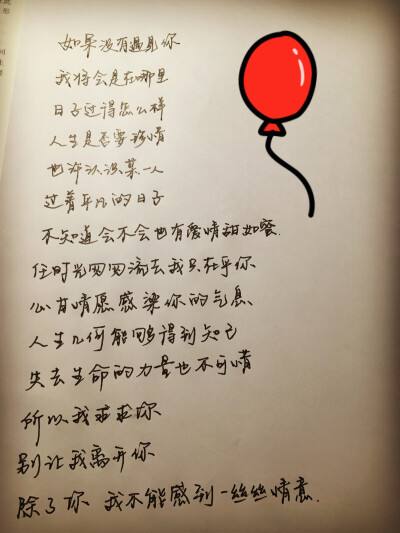 如果没有遇见你
我将会是在哪里
日子过得怎么样
人生是否要珍惜
也许认识某一人
过着平凡的日子
不知道会不会也有爱情甜如蜜.
任时光匆匆流去我只在乎你
心甘情愿感染你的气息
人生几何能够得到知己
失去生命的力量也不可惜
所以我求求你
别让我离开你
除了你 我不能感到一丝丝情意.